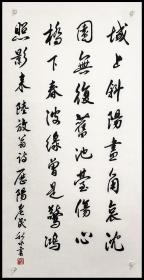 城上斜陽畫角哀沈
園無復舊池臺傷心
橋下春波綠曾是驚鴻
照影来 陸放翁詩 歷陽